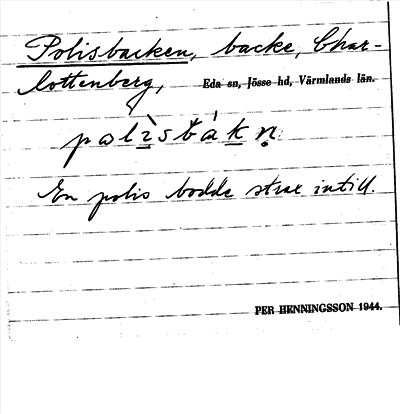 Polisbacken, backe, Char-
lottenberg, Eda sn, Jösse hd, Värmlands län.
palìsbák̲ṇ
En polis bodde strax intill.
PER HENNINGSSON 1944.